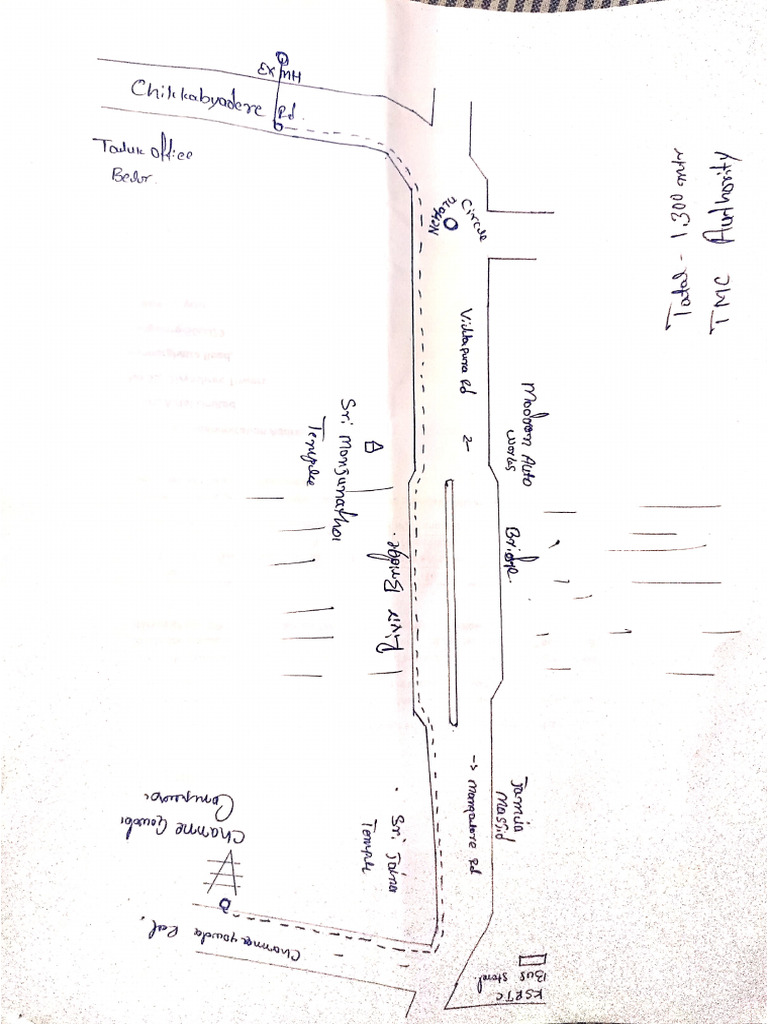 Ex MH
Chikkabyadere Rd.
Taluk office
Belur.
NeHaru
Circle
Total - 1.300 mtr
TMC Authority
Vidtapura Rd
Modron Auto
works
Sri Mangunatha
Temple
Bridge.
River Bridge.
Jamia
Massid
-> Mangalore Rd
Sri Jaina
Temple
Channe Gowda
Channagowda Rd.
KSRTC
Bus stand.